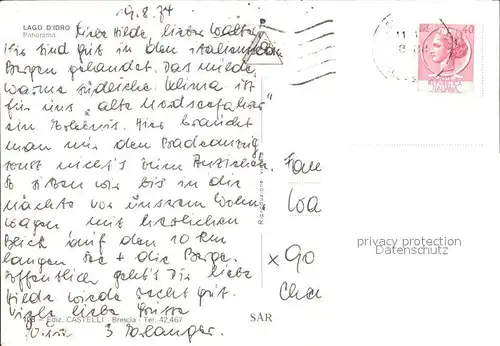 9.8.74
LAGO D'IDRO
Panorama
Liebe Hilde, lieber Walter
Wir sind gut in den italienischen
Bergen gelandet. Das milde,
warme südliche Klima ist
für uns „alte Nordseefahrer"
ein Erlebnis. Hier braucht
man nur den Badeanzug
sonst nichts zum Anziehen.
So sitzen wir bis in die
Nächte vor unserem Wohn
wagen mit herrlichem
Blick auf den 10 km
langen See + die Berge.
Hoffentlich geht's Dir liebe
Hilde wieder recht gut.
Viele liebe Grüsse
3 Erlanger.
Ediz. CASTELLI - Brescia - Tel. 42.467
SAR
Riproduzione vietata
40
ITALIANE
Fam
Wa
x 90
privacy protection
Datenschutz